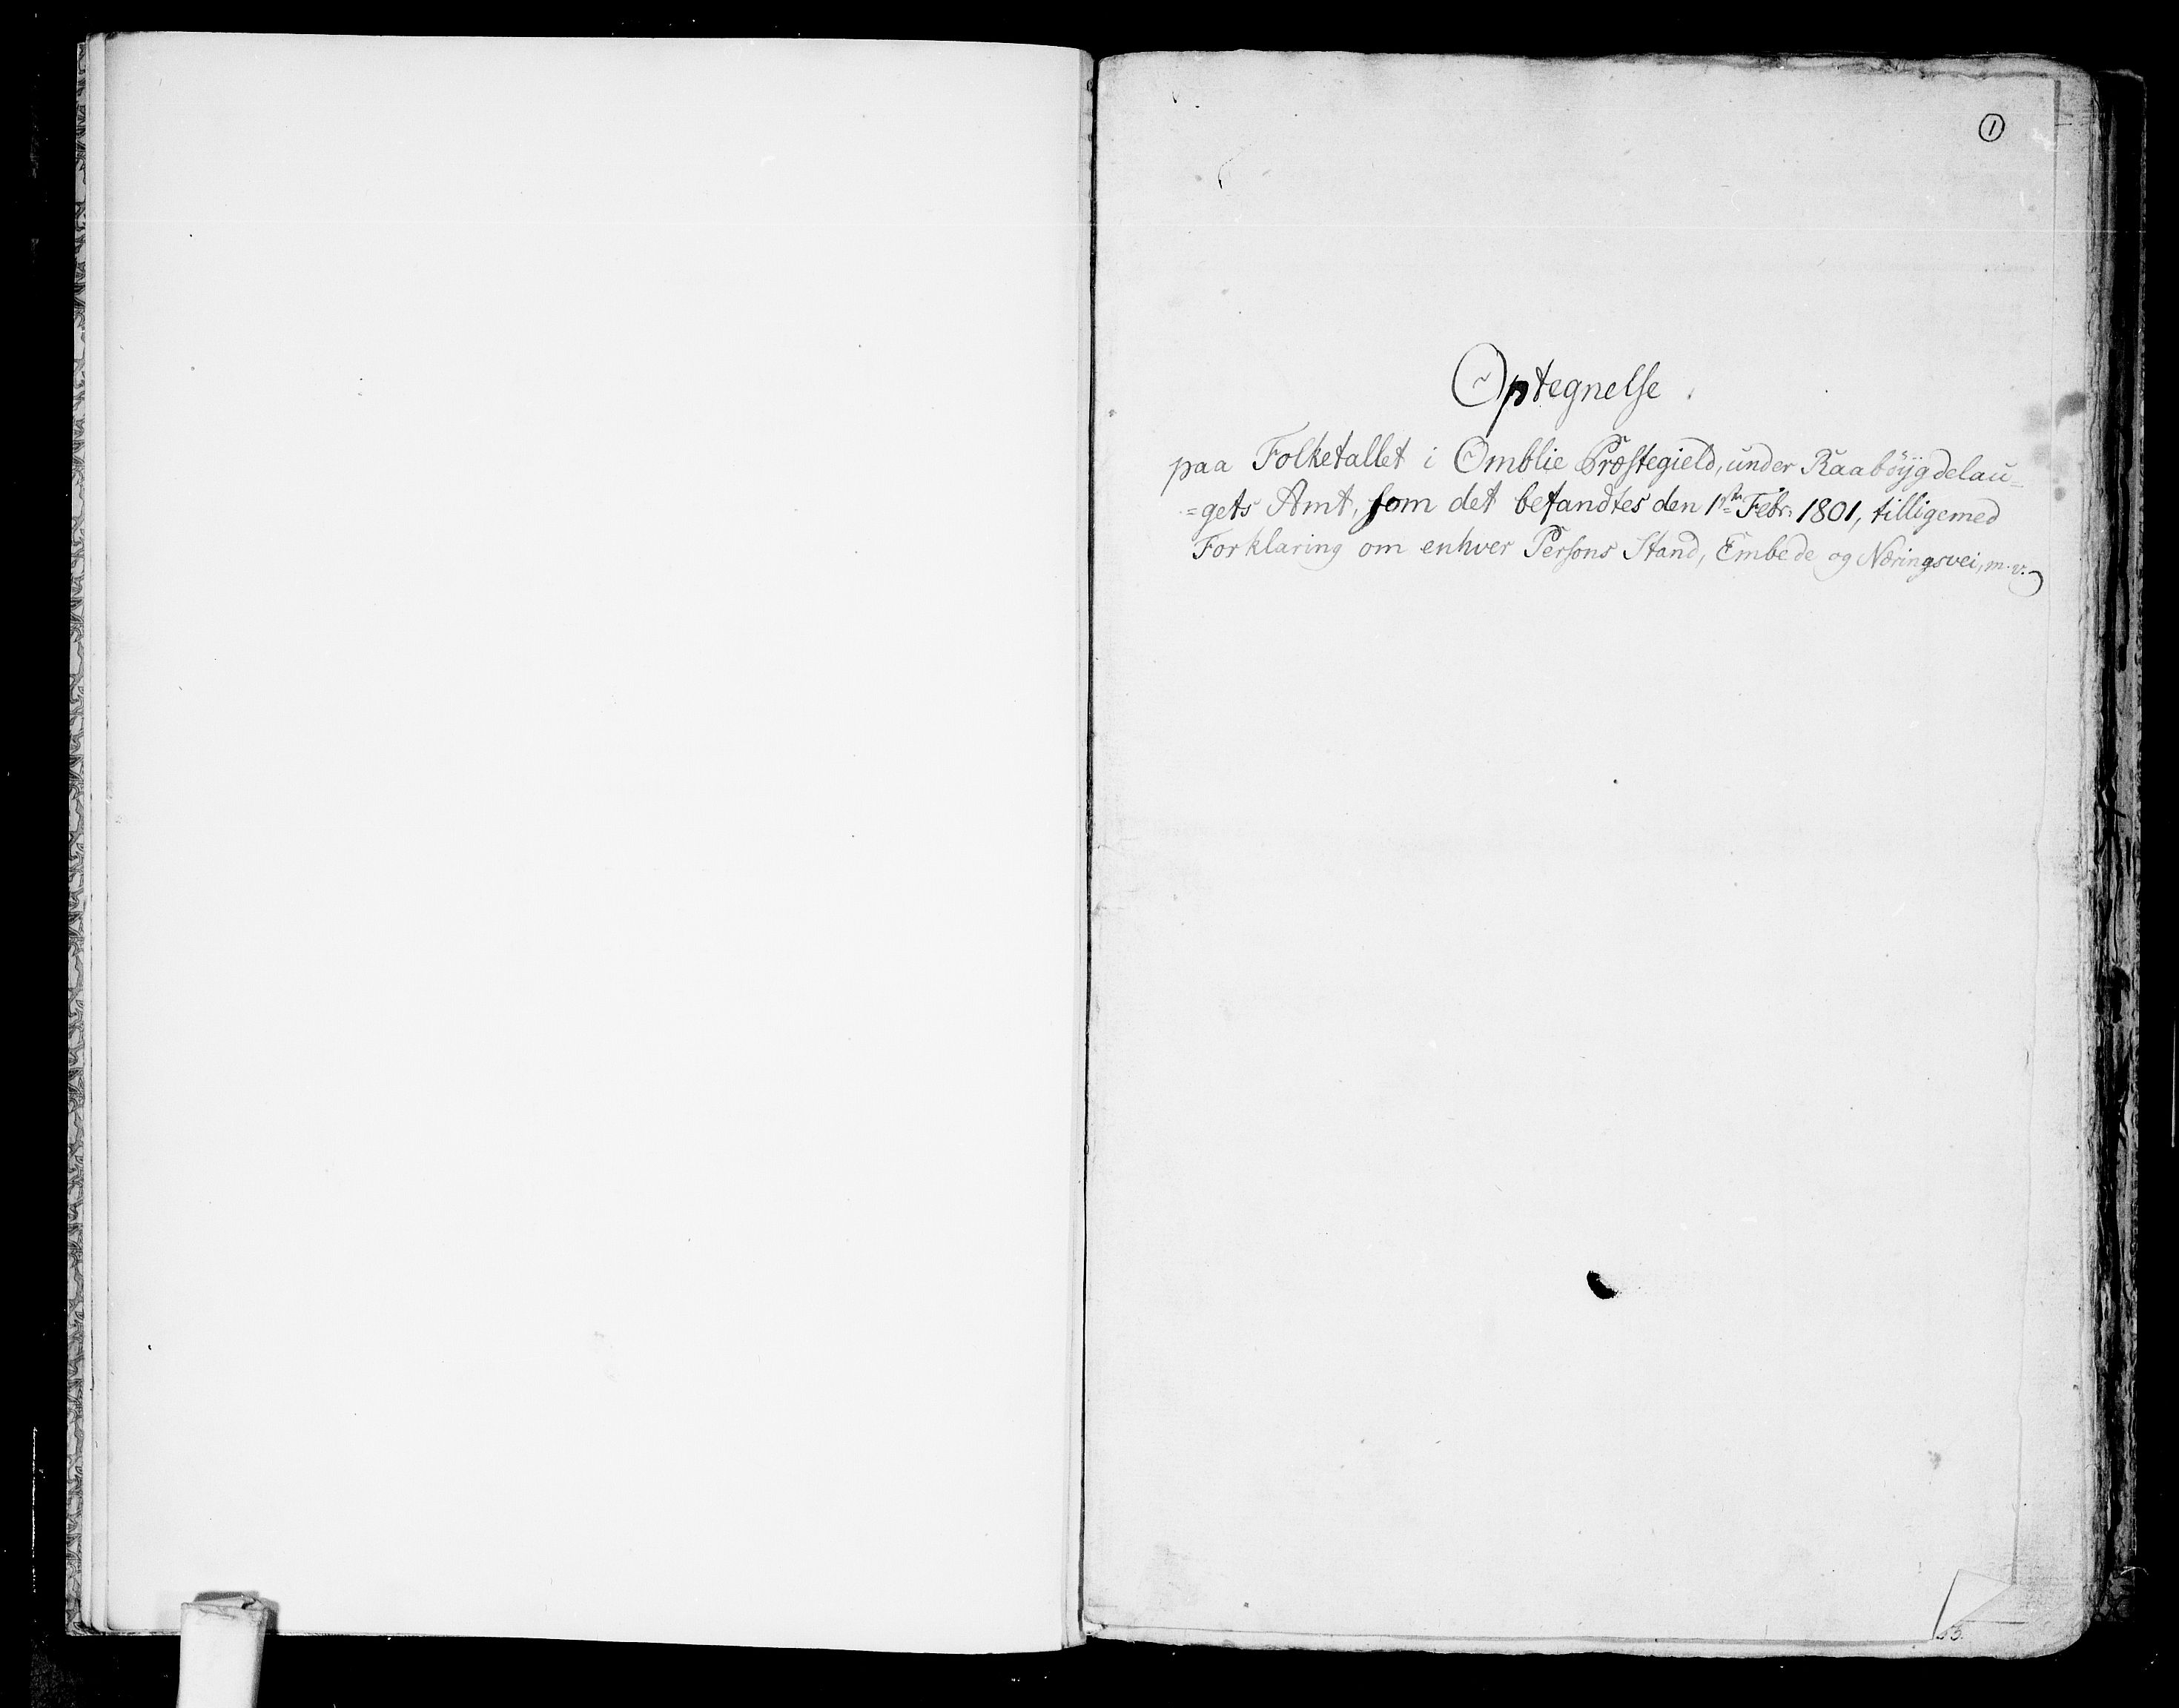 1
Optegnelse
paa Folketallet i Omblie Præstegield, under Raabøÿgdelau-
=gets Amt, som det befandtes den 1ste Febr: 1801, tilligemed
Forklaring om enhver Persons Stand, Embede og Næringsvei, m.v.